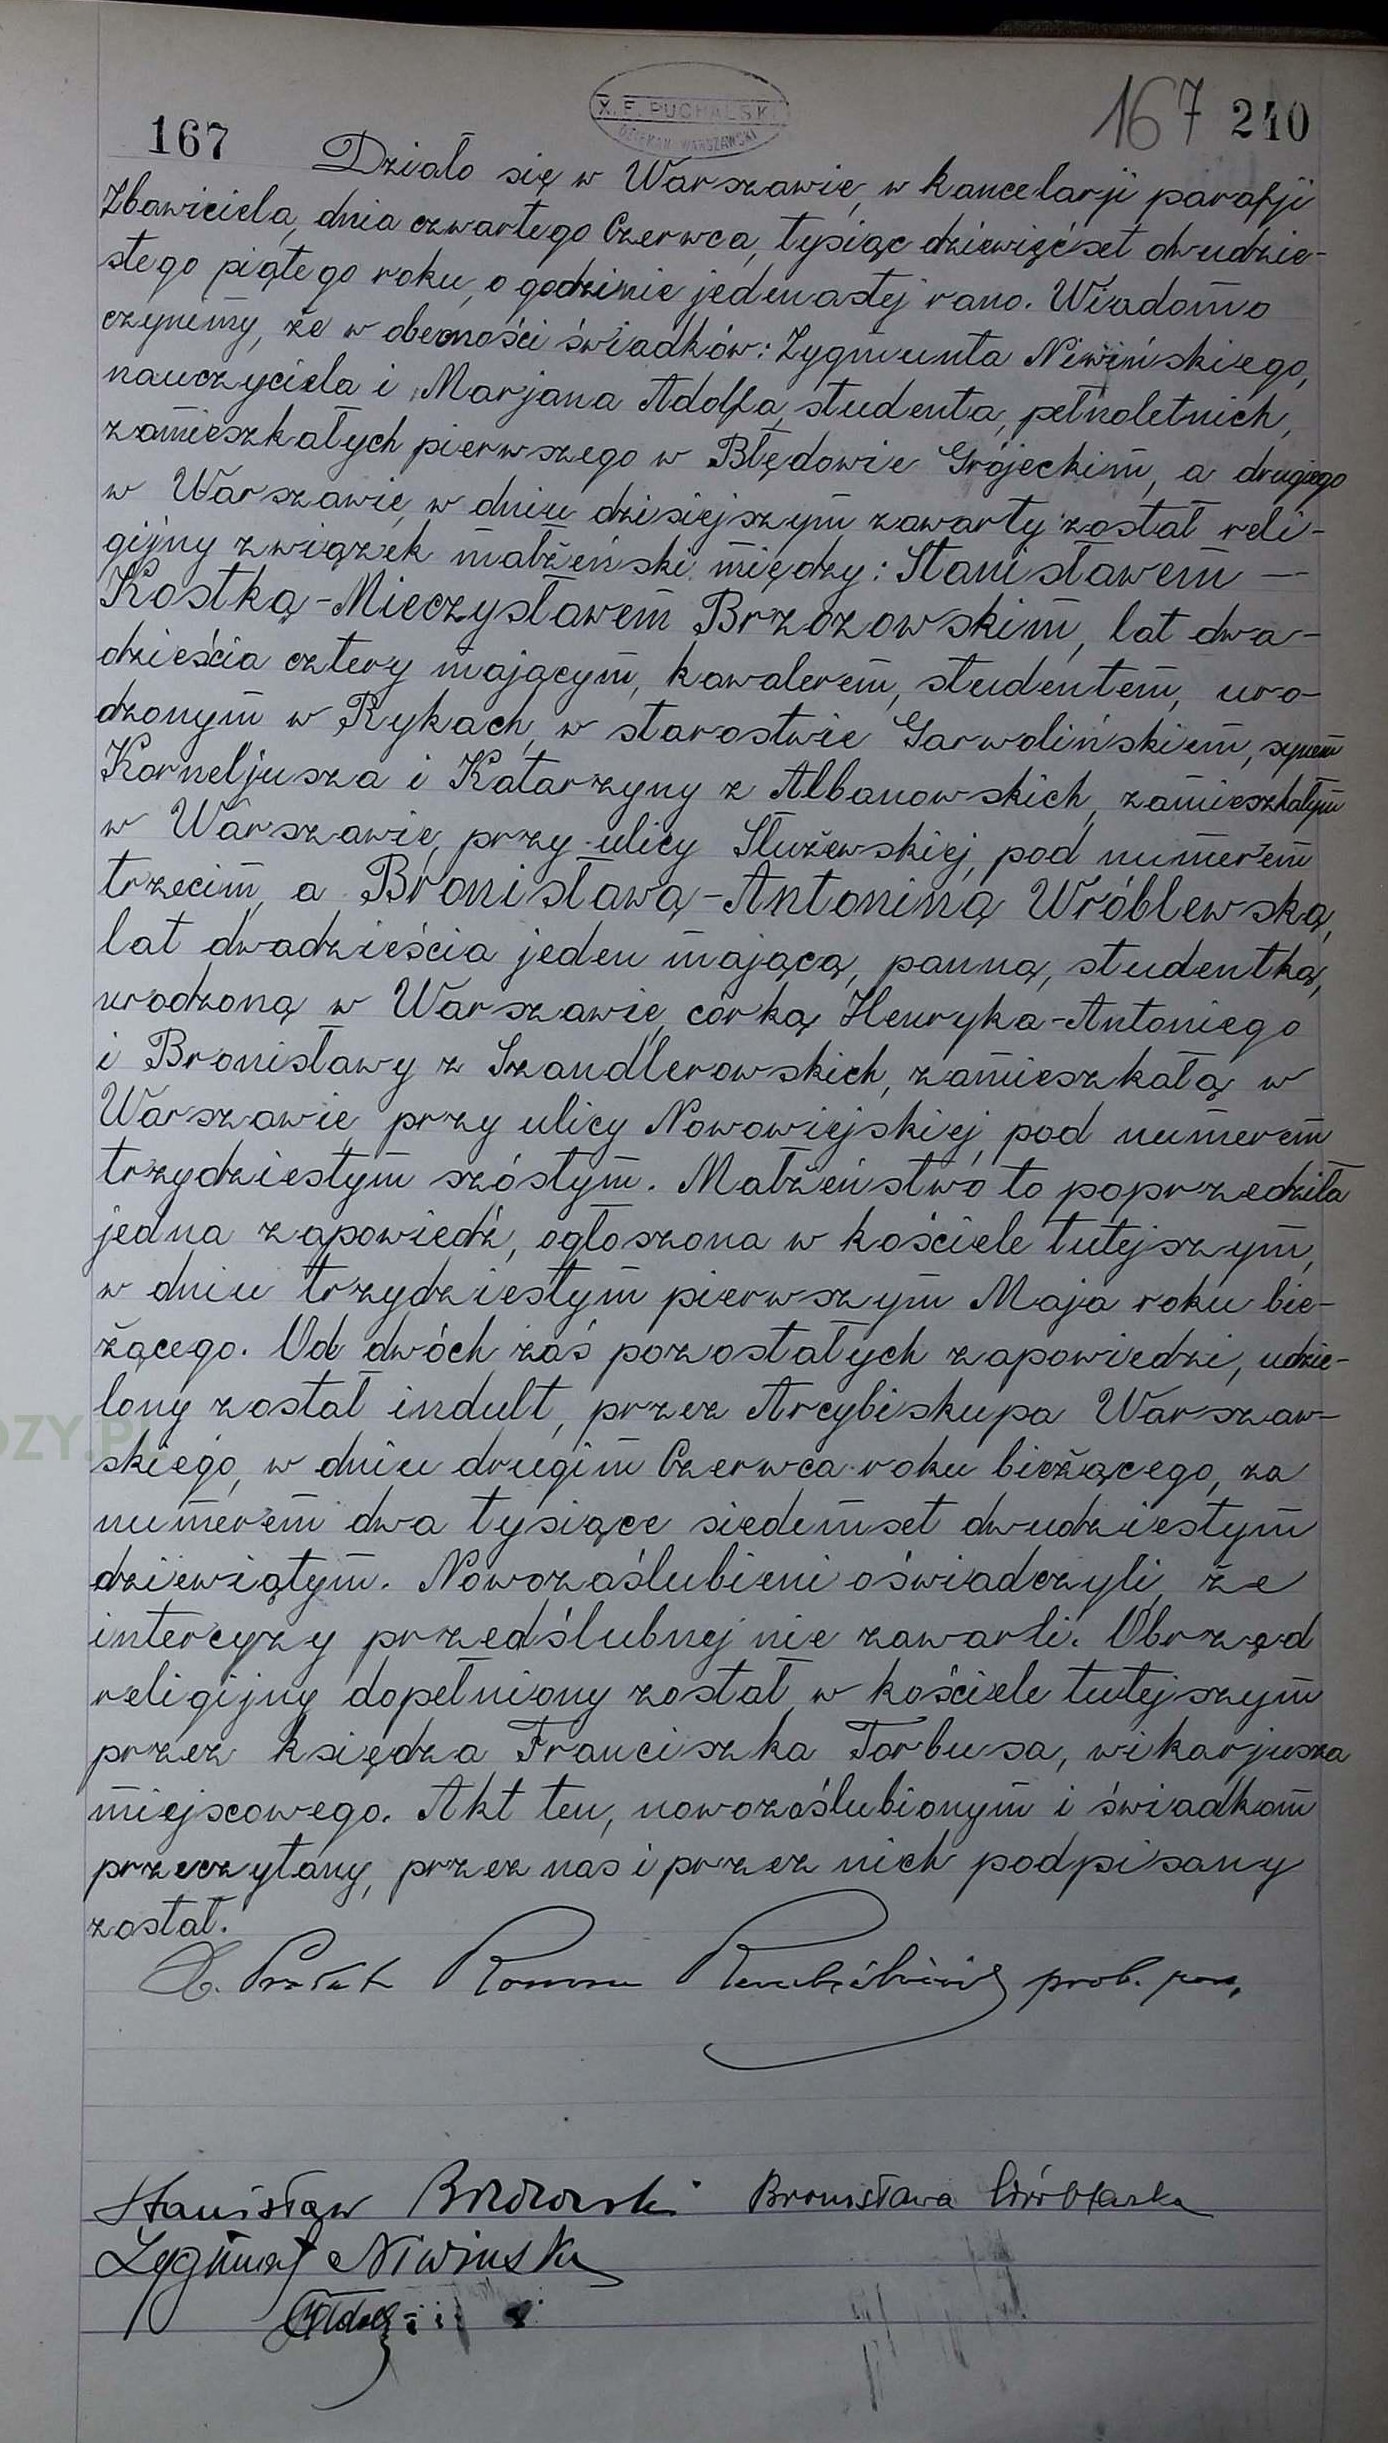 X. F. PUCHALSKI
DZIEKAN WARSZAWSKI
167 167 240
Działo się w Warszawie, w kancelarji parafji
Zbawiciela, dnia czwartego Czerwca, tysiąc dziewięćset dwudzie-
stego piątego roku, o godzinie jedenastej rano. Wiadomo
czynimy, że w obecności świadków: Zygmunta Niwińskiego,
nauczyciela i Marjana Adolfa, studenta, pełnoletnich,
zamieszkałych pierwszego w Błędowie Grójeckim, a drugiego
w Warszawie, w dniu dzisiejszym zawarty został reli-
gijny związek małżeński między: Stanisławem —
Kostką-Mieczysławem Brzozowskim, lat dwa-
dzieścia cztery mającym, kawalerem, studentem, uro-
dzonym w Rykach, w starostwie Garwolińskiem, synem
Korneljusza i Katarzyny z Albanowskich, zamieszkałym
w Warszawie, przy ulicy Służewskiej, pod numerem
trzecim, a Bronisławą-Antoniną Wróblewską,
lat dwadzieścia jeden mającą, panną, studentką,
urodzoną w Warszawie, córką Henryka-Antoniego
i Bronisławy z Szandlerowskich, zamieszkałą w
Warszawie, przy ulicy Nowowiejskiej, pod numerem
trzydziestym szóstym. Małżeństwo to poprzedziła
jedna zapowiedź, ogłoszona w kościele tutejszym,
w dniu trzydziestym pierwszym Maja roku bie-
żącego. Od dwóch zaś pozostałych zapowiedzi, udzie-
lony został indult, przez Arcybiskupa Warszaw-
skiego, w dniu drugim Czerwca roku bieżącego, za
numerem dwa tysiące siedemset dwudziestym
dziewiątym. Nowozaślubieni oświadczyli, że
intercyzy przedślubnej nie zawarli. Obrzęd
religijny dopełniony został w kościele tutejszym
przez księdza Franciszka Torbusa, wikarjusza
miejscowego. Akt ten, nowozaślubionym i świadkom
przeczytany, przez nas i przez nich podpisany
został.
X. Prałat Roman Rembieliński prob. par.
Stanisław Brzozowski Bronisława Wróblewska
Zygmunt Niwiński